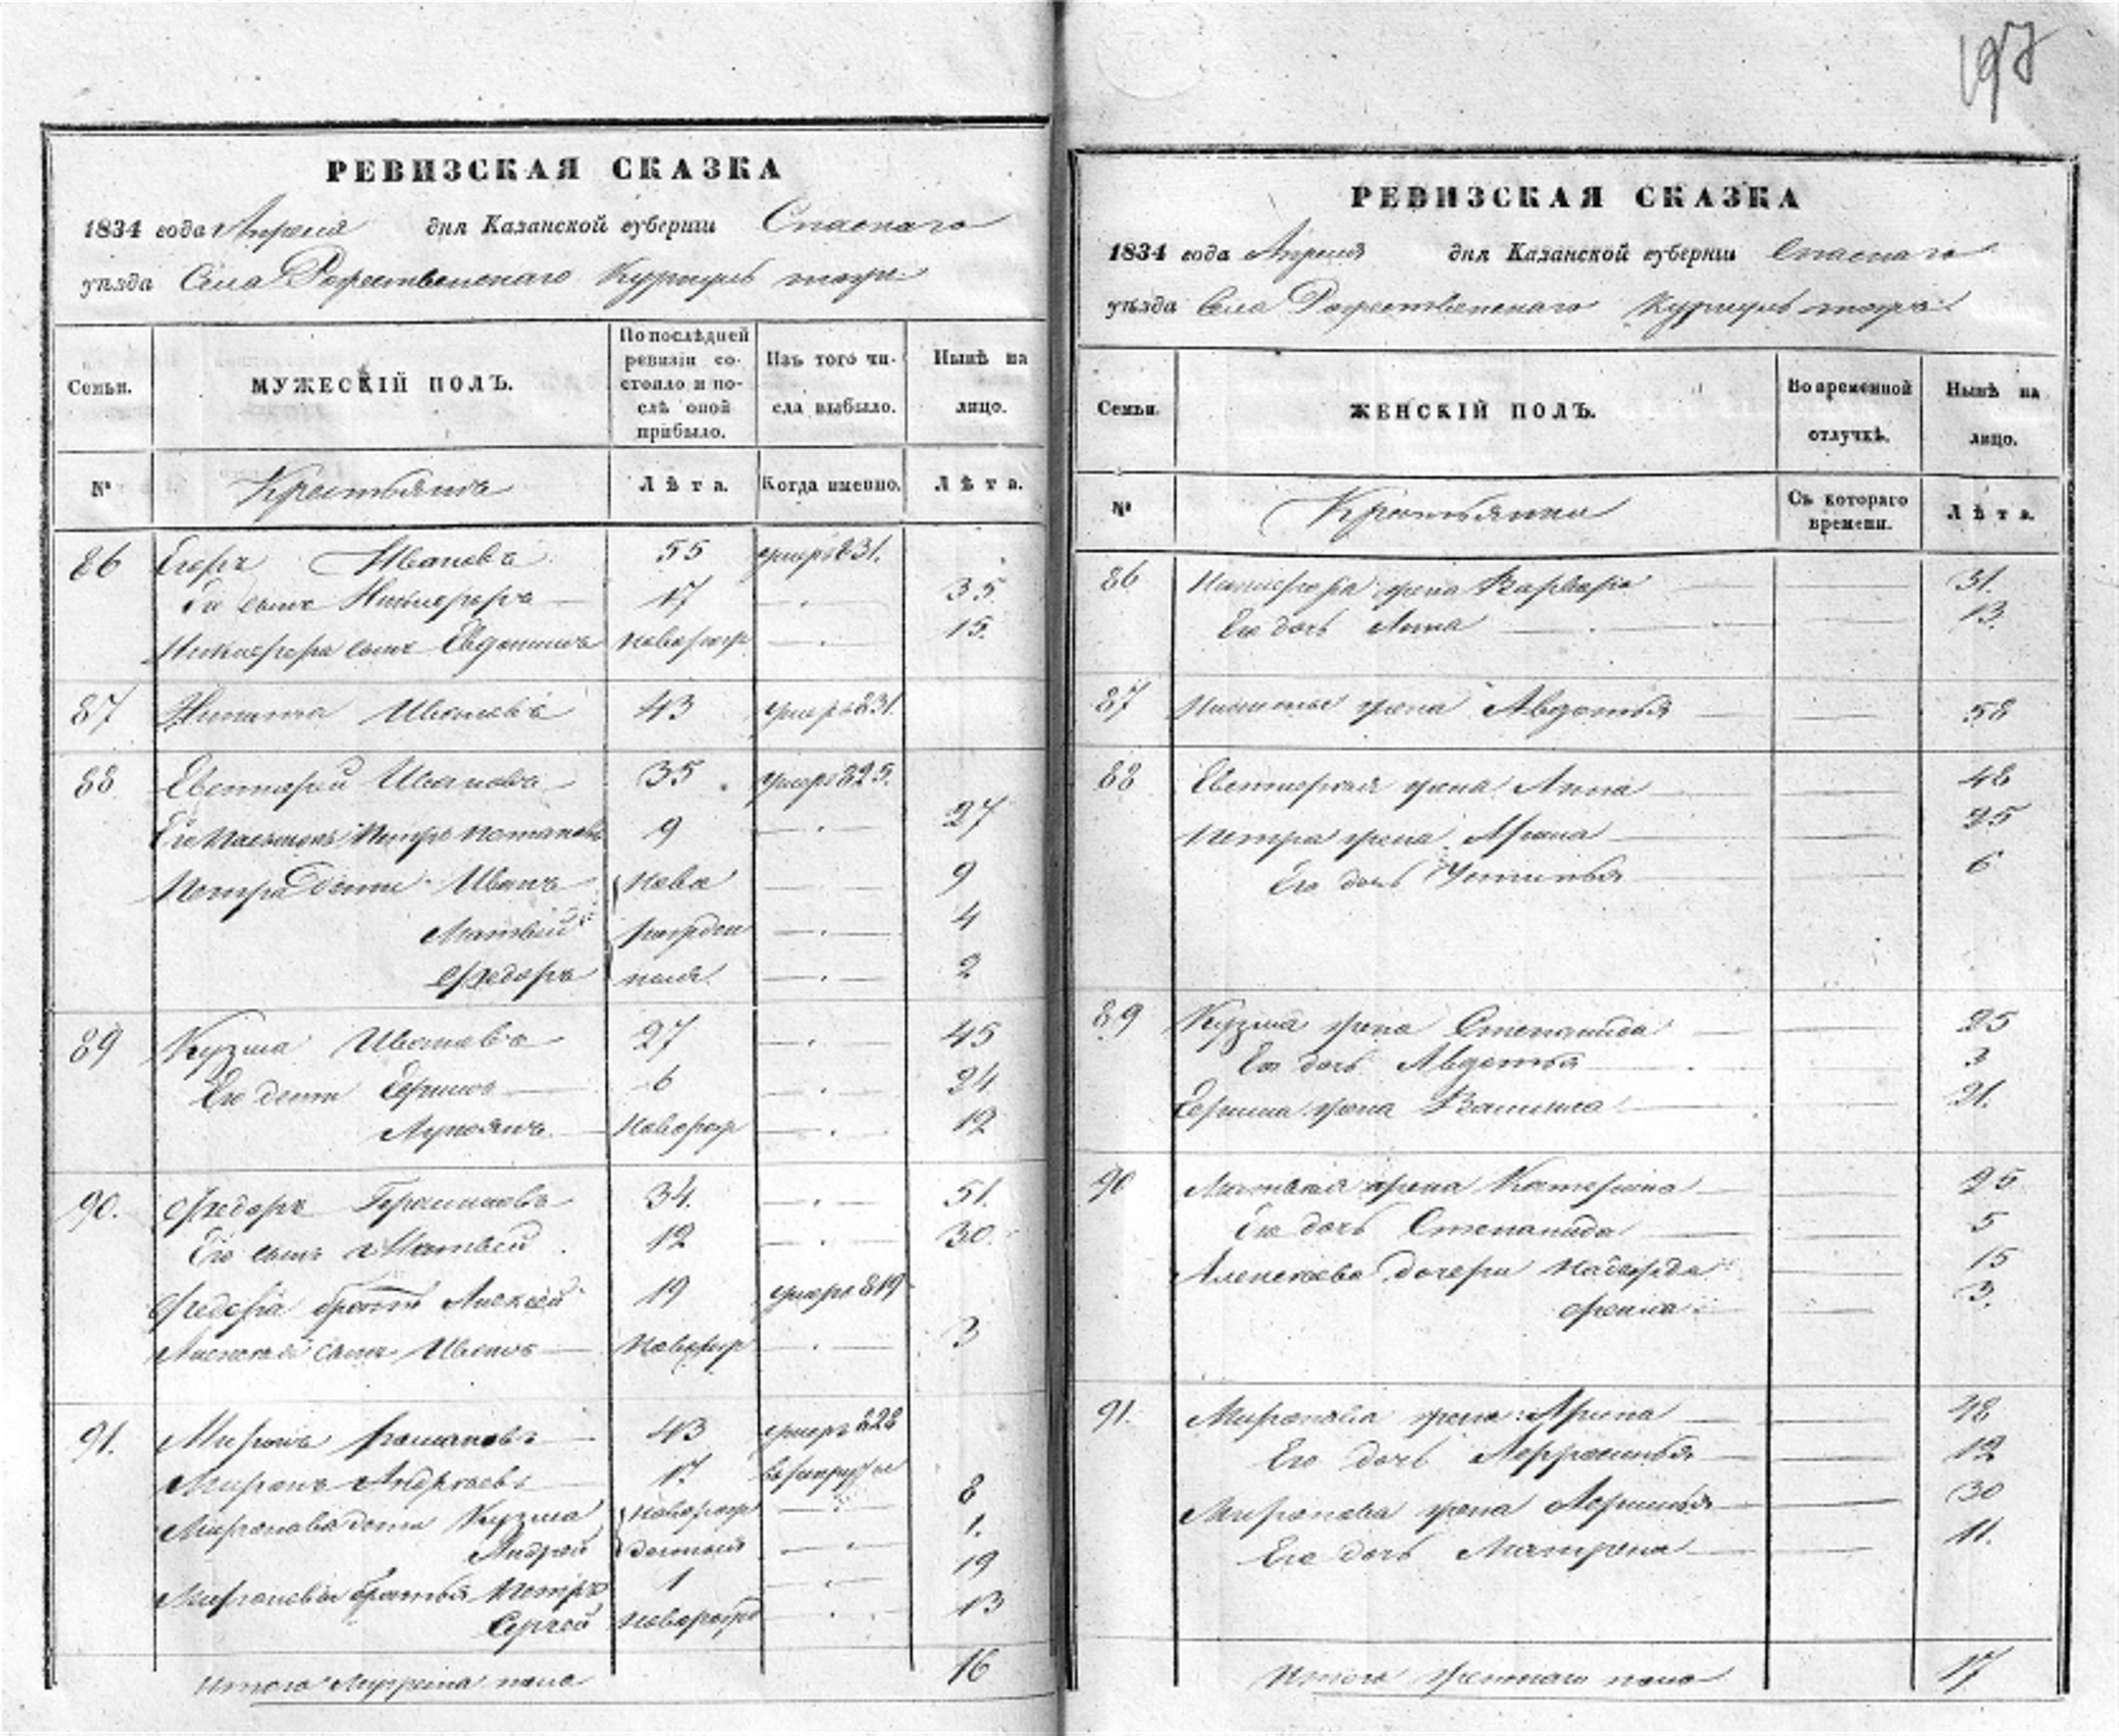 197
РЕВИЗСКАЯ СКАЗКА
1834 года Апреля дня Казанской губерніи Спаскаго
уѣзда Села Рожественскаго Куркуль тожъ
Семьи.
МУЖЕСКІЙ ПОЛЪ.
По послѣдней ревизіи состояло и послѣ оной прибыло.
Изъ того числа выбыло.
Нынѣ на лицо.
№
Крестьянъ
Лѣта.
Когда именно.
Лѣта.
86 Егоръ Ивановъ 55 умеръ 831.
Его сынъ Никифоръ 17 35.
Никифора сынъ Евдокимъ новорож. 15.
87 Никита Ивановъ 43 умеръ 831.
88 Ивановъ 35 умеръ 825.
Его пасынокъ Петръ Потаповъ 9 27
Петра дети Иванъ ново 9
Матвей рожден 4
Федоръ ныя 2
89 Кузма Ивановъ 27 45
Его дети 6 24
Лукоянъ новорож 12
90. Федоръ Герасимовъ 34. 51.
Его сынъ Матвей 12 30.
Федора братъ Алексей 19 умеръ 819
Алексея сынъ Иванъ новорож 3
91. Миронъ Романовъ 43 умеръ 828
Миронъ Андреевъ 17 в рекруты
Миронова дети Кузма новорож 8
Андрей денныя 1.
Мироновы братья Петръ 1 19
Сергей новорож 13
Итого мужеска пола 16
РЕВИЗСКАЯ СКАЗКА
1834 года Апреля дня Казанской губерніи Спаскаго
уѣзда Села Рожественскаго Куркуль тожъ
Семьи.
ЖЕНСКІЙ ПОЛЪ.
Во временной отлучкѣ.
Нынѣ на лицо.
№
Крестьянки
Съ котораго времени.
Лѣта.
86 Никифора жена Варвара 31.
Его дочь Анна 13.
87 Никиты жена Авдотья 58
88 жена Анна 48
Петра жена Арина 25
Его дочь Устинья 6
89 Кузма жена Степанида 25
Ея дочь Авдотья 3
жена 21.
90 Матвея жена Катерина 25
Его дочь Степанида 5
Алексеева дочери Надежда 15
3.
91. Миронова жена Арина 48
Его дочь 12
Миронова жена 30
Его дочь Матрена 11.
Итого женскаго пола 17